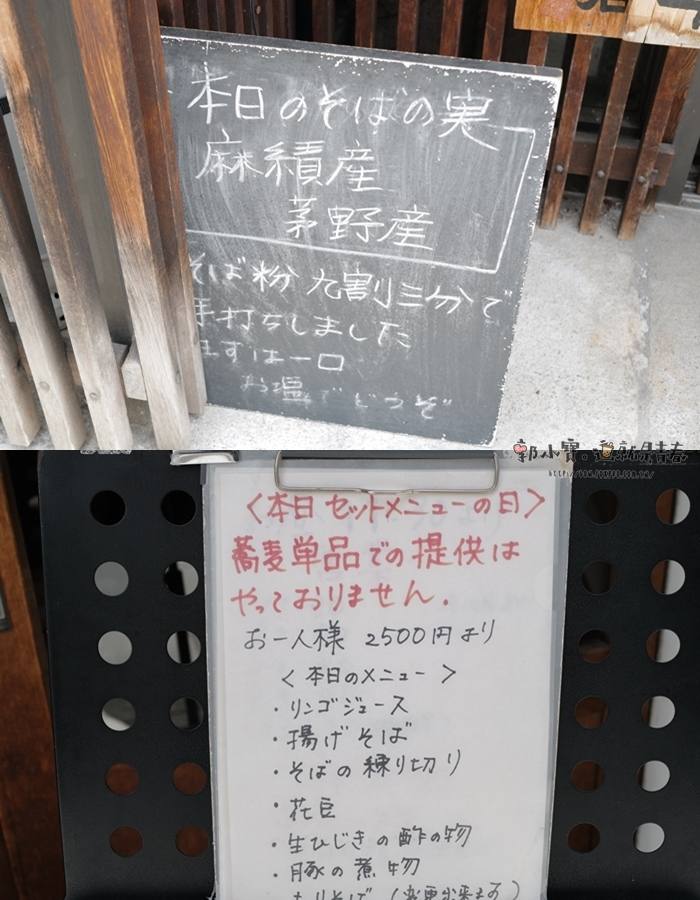 本日のそばの実
麻績産
茅野産
そば粉 九割三分で
手打ちしました
まずは一口
お塩でどうぞ
<本日 セットメニューの日>
蕎麦単品での提供は
やっておりません.
お一人様 2500円より
<本日のメニュー>
・リンゴジュース
・揚げそば
・そばの練り切り
・花豆
・生ひじきの酢の物
・豚の煮物
もりそば (変更出来ます)